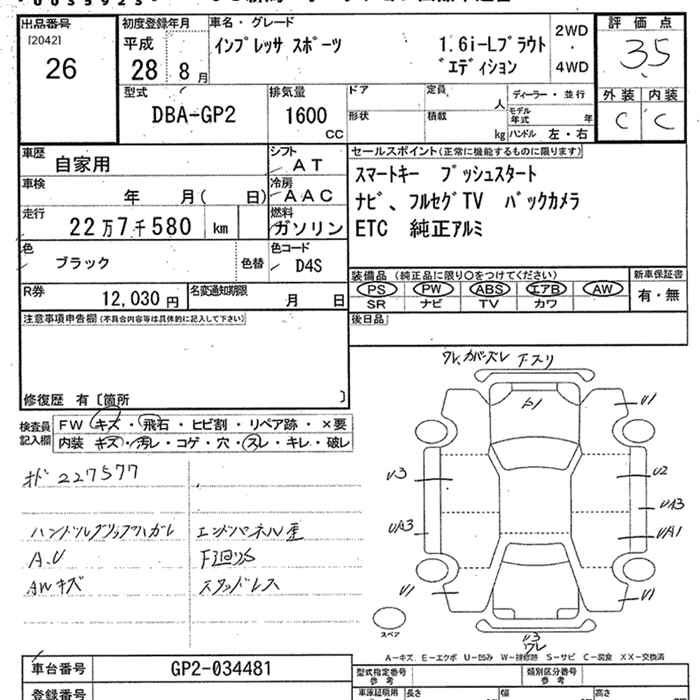 出品番号
[2042]
26
初度登録年月
平成
28年 8月
車名・グレード
インプレッサ スポーツ
1.6i-Lプラウド
エディション
2WD
4WD
評価点
3.5
外装 内装
C C
型式
DBA-GP2
排気量
1600
CC
ドア
定員
人
形状
積載
kg
ディーラー・並行
モデル年式
年
ハンドル 左・右
車歴
自家用
シフト
AT
車検
年 月( 日)
冷房
AAC
走行
22万7千580 km
燃料
ガソリン
色
ブラック
色替
色コード
D4S
R券
12,030円
名変通知期限
月 日
セールスポイント(正常に機能するものに限ります)
スマートキー プッシュスタート
ナビ、フルセグTV バックカメラ
ETC 純正アルミ
装備品(純正品に限り○をつけてください)
PS PW ABS エアB AW
SR ナビ TV カワ
新車保証書
有・無
後日品
注意事項申告欄(不具合内容等は具体的に記入して下さい)
修復歴 有[箇所 ]
検査員
記入欄
FW キズ・飛石・ヒビ割・リペア跡・×要
内装 キズ・汚レ・コゲ・穴・スレ・キレ・破レ
オド 227577
ハンドルグリップハガレ
A.U
AWキズ
エンドパネル歪
F廻りS
スタッドレス
ワレ、カバーズレ 下スリ
U1
U3
U2
UA3
UA3
UA1
U1
U1
U3
ワレ
スペア
A-キズ E-エクボ U-凹み W-補修跡 S-サビ C-腐食 XX-交換済
車台番号
GP2-034481
登録番号
型式指定番号
参考
類別区分番号
参考
車庫証明用
長さ
幅
高さ